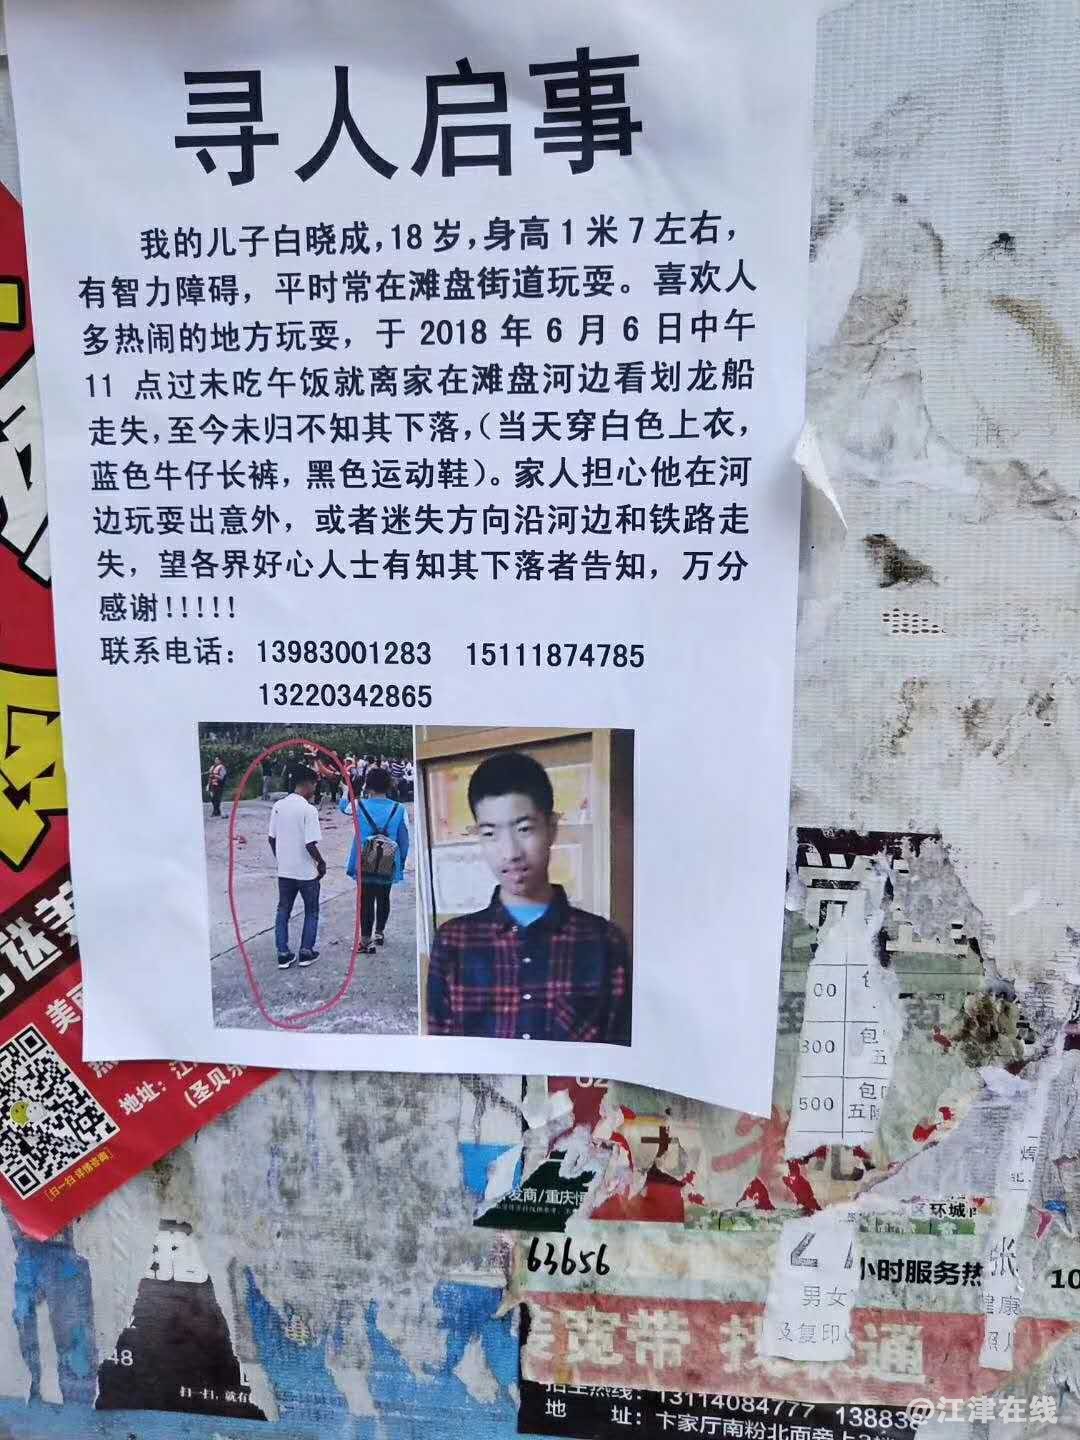 寻人启事
我的儿子白晓成,18岁,身高1米7左右,
有智力障碍，平时常在滩盘街道玩耍。喜欢人
多热闹的地方玩耍，于2018年6月6日中午
11点过未吃午饭就离家在滩盘河边看划龙船
走失,至今未归不知其下落,(当天穿白色上衣,
蓝色牛仔长裤,黑色运动鞋)。家人担心他在河
边玩耍出意外，或者迷失方向沿河边和铁路走
失，望各界好心人士有知其下落者告知，万分
感谢!!!!!
联系电话：13983001283 15111874785
13220342865
送美
美丽
地址：江
(圣贝
[扫一扫 详情咨询]
00
300
包
五
500
包
五险
心
发商/重庆恒
区环城
63656
小时服务热
10
男女
及复印
健康
宽带 找 通
48
扫一扫，就有
招生热线：13114084777 13883
地 址：卞家厅南粉北面旁
@江津在线